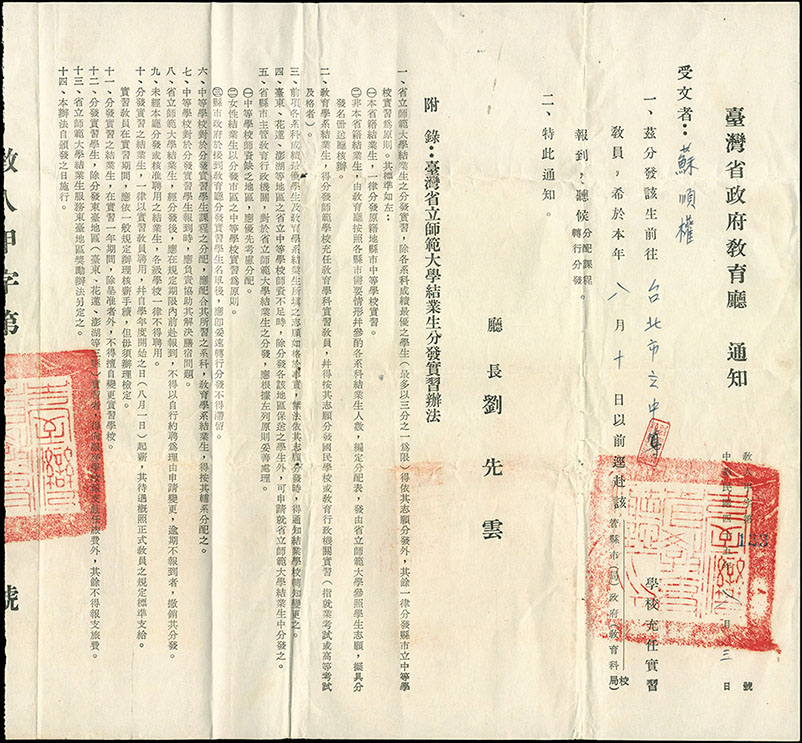 臺灣省政府教育廳 通知
中華民國
133
號
日
受文者：蘇順權
一、茲分發該生前往 台北市立中 學校充任實習
教員，希於本年 八 月 十 日以前逕赴該 管縣市（局）政府（教育科局） 校
報到，聽候 分配課程 轉行分發 。
二、特此通知。
廳長 劉先雲
附 錄：臺灣省立師範大學結業生分發實習辦法
一、省立師範大學結業生之分發實習，除各系科成績最優之學生（最多以三分之一為限）得依其志願分發外，其餘一律分發縣市立中等學
校實習為原則。其標準如左：
㈠本省籍結業生，一律分發原籍地縣市中等學校實習。
㈡非本省籍結業生，由教育廳按照各縣市需要情形并參酌各系科結業人數，編定分配表，發由省立師範大學參照學生志願，擬具分
發名冊送廳核辦。
二、教育學系結業生，得分發師範學校充任教育學科實習教員，并得按其志願分發國民學校或教育行政機關實習（指就業考試或高等考試
及格者）。
三、前項各系科成績最優學生及教育學系結業生所填之志願如格於事實，無法依其志願分發時，得通知結業學校轉知變更之。
四、臺東、花蓮、澎湖等地區之省立中等學校師資不足時，除分發各該地區保送之學生外，可申請就省立師範大學結業生中分發之。
五、省縣市主管教育行政機關，對於省立師範大學結業生之分發，應根據左列原則妥善處理。
㈠中等學校師資缺乏地區，應優先考慮分配。
㈡女性結業生以分發市區之中等學校實習為原則。
㈢縣市政府於接到教育廳分發實習學生名單後，應即妥速轉行分發不得滯留。
六、中等學校對於分發實習學生課程之分配，應配合其所習之系科，教育學系結業生，得按其輔系分配之。
七、中等學校對於分發實習學生報到時，應負責協助其解決膳宿問題。
八、省立師範大學結業生，經分發後，應在規定期限內前赴報到，不得以自行約聘為理由申請變更，逾期不報到者，撤銷其分發。
九、未經本廳分發或核准聘用之結業生，各級學校一律不得聘用。
十、分發實習之結業生，一律以實習教員聘用，并自學年度開始之日（八月一日）起薪，其待遇概照正式教員之規定標準支給。
實習教員在實習期間，應依一般規定辦理核薪手續，但毋須辦理檢定。
十一、分發實習之結業生，在實習一年期間，除呈准者外，不得擅自變更實習學校。
十二、分發實習學生，除分發東臺地區（臺東、花蓮、澎湖等三縣）實習者，得 旅費外，其餘不得報支旅費。
十三、省立師範大學結業生服務東臺地區獎勵辦法另定之。
十四、本辦法自頒發之日施行。
教人甲字第 號